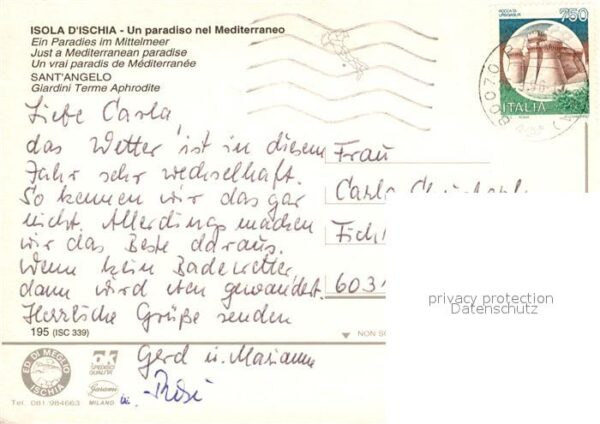 ISOLA D'ISCHIA - Un paradiso nel Mediterraneo
Ein Paradies im Mittelmeer
Just a Mediterranean paradise
Un vrai paradis de Méditerranée
SANT'ANGELO
Giardini Terme Aphrodite
750
ITALIA
Liebe Carla,
das Wetter ist in diesem
Jahr sehr wechselhaft.
So kennen wir das gar
nicht. Allerdings machen
wir das Beste daraus.
Wenn kein Badewetter,
dann wird eben gewandert.
Herrliche Grüße senden
Gerd u. Marianne
u. Rosi
Frau
Carla
6031
privacy protection
Datenschutz
195 (ISC 339)
NON
ED. DI MEGLIO
ISCHIA
Tel. 081 984663
ak
Garami
MILANO